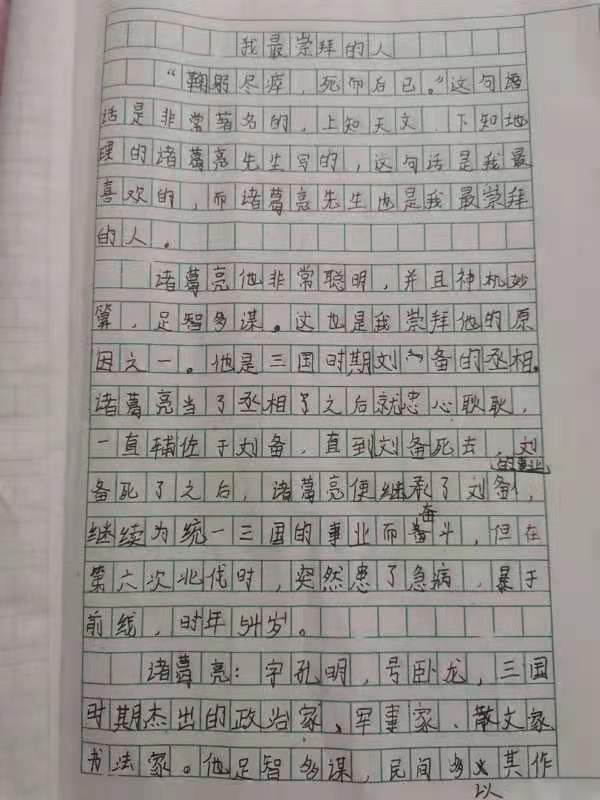 我最崇拜的人
“鞠躬尽瘁，死而后已。”这句话
话是非常著名的，上知天文，下知地
理的诸葛亮先生写的，这句话是我最
喜欢的，而诸葛亮先生也是我最崇拜
的人。
诸葛亮他非常聪明，并且神机妙
算，足智多谋。这也是我崇拜他的原
因之一。他是三国时期刘备的丞相。
诸葛亮当了丞相了之后就忠心耿耿，
一直辅佐于刘备，直到刘备死去，刘
的事业
备死了之后，诸葛亮便继承了刘备，
奋
继续为统一三国的事业而奋斗，但在
第六次北伐时，突然患了急病，暴于
前线，时年54岁。
诸葛亮：字孔明，号卧龙，三国
时期杰出的政治家、军事家、散文家
书法家。他足智多谋，民间多其作
以